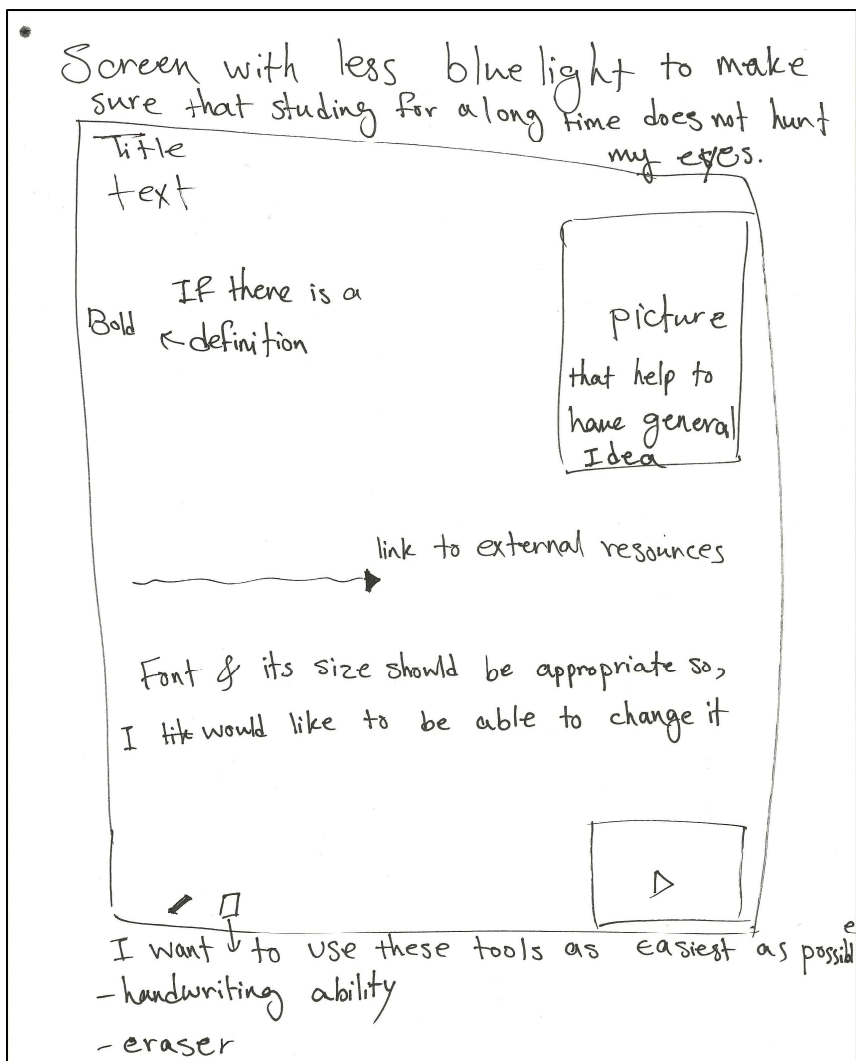 Screen with less blue light to make
sure that studing for a long time does not hunt
my eyes.
Title
text
If there is a
Bold ← definition
picture
that help to
have general
Idea
link to external resources
Font & its size should be appropriate so,
I like would like to be able to change it
I want to use these tools as easiest as possible
- handwriting ability
- eraser